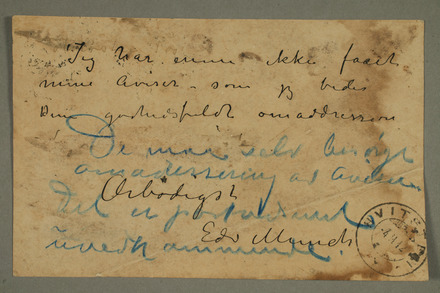 Jeg har ennu ikke faaet
mine Aviser – som jeg bedes
Dem godhedsfuldt omaddressere
De maa selv besørge
omadressering af Aviser.
Ærbødigst
Det er postvæsenet
Edv Munch
uvedkommende.